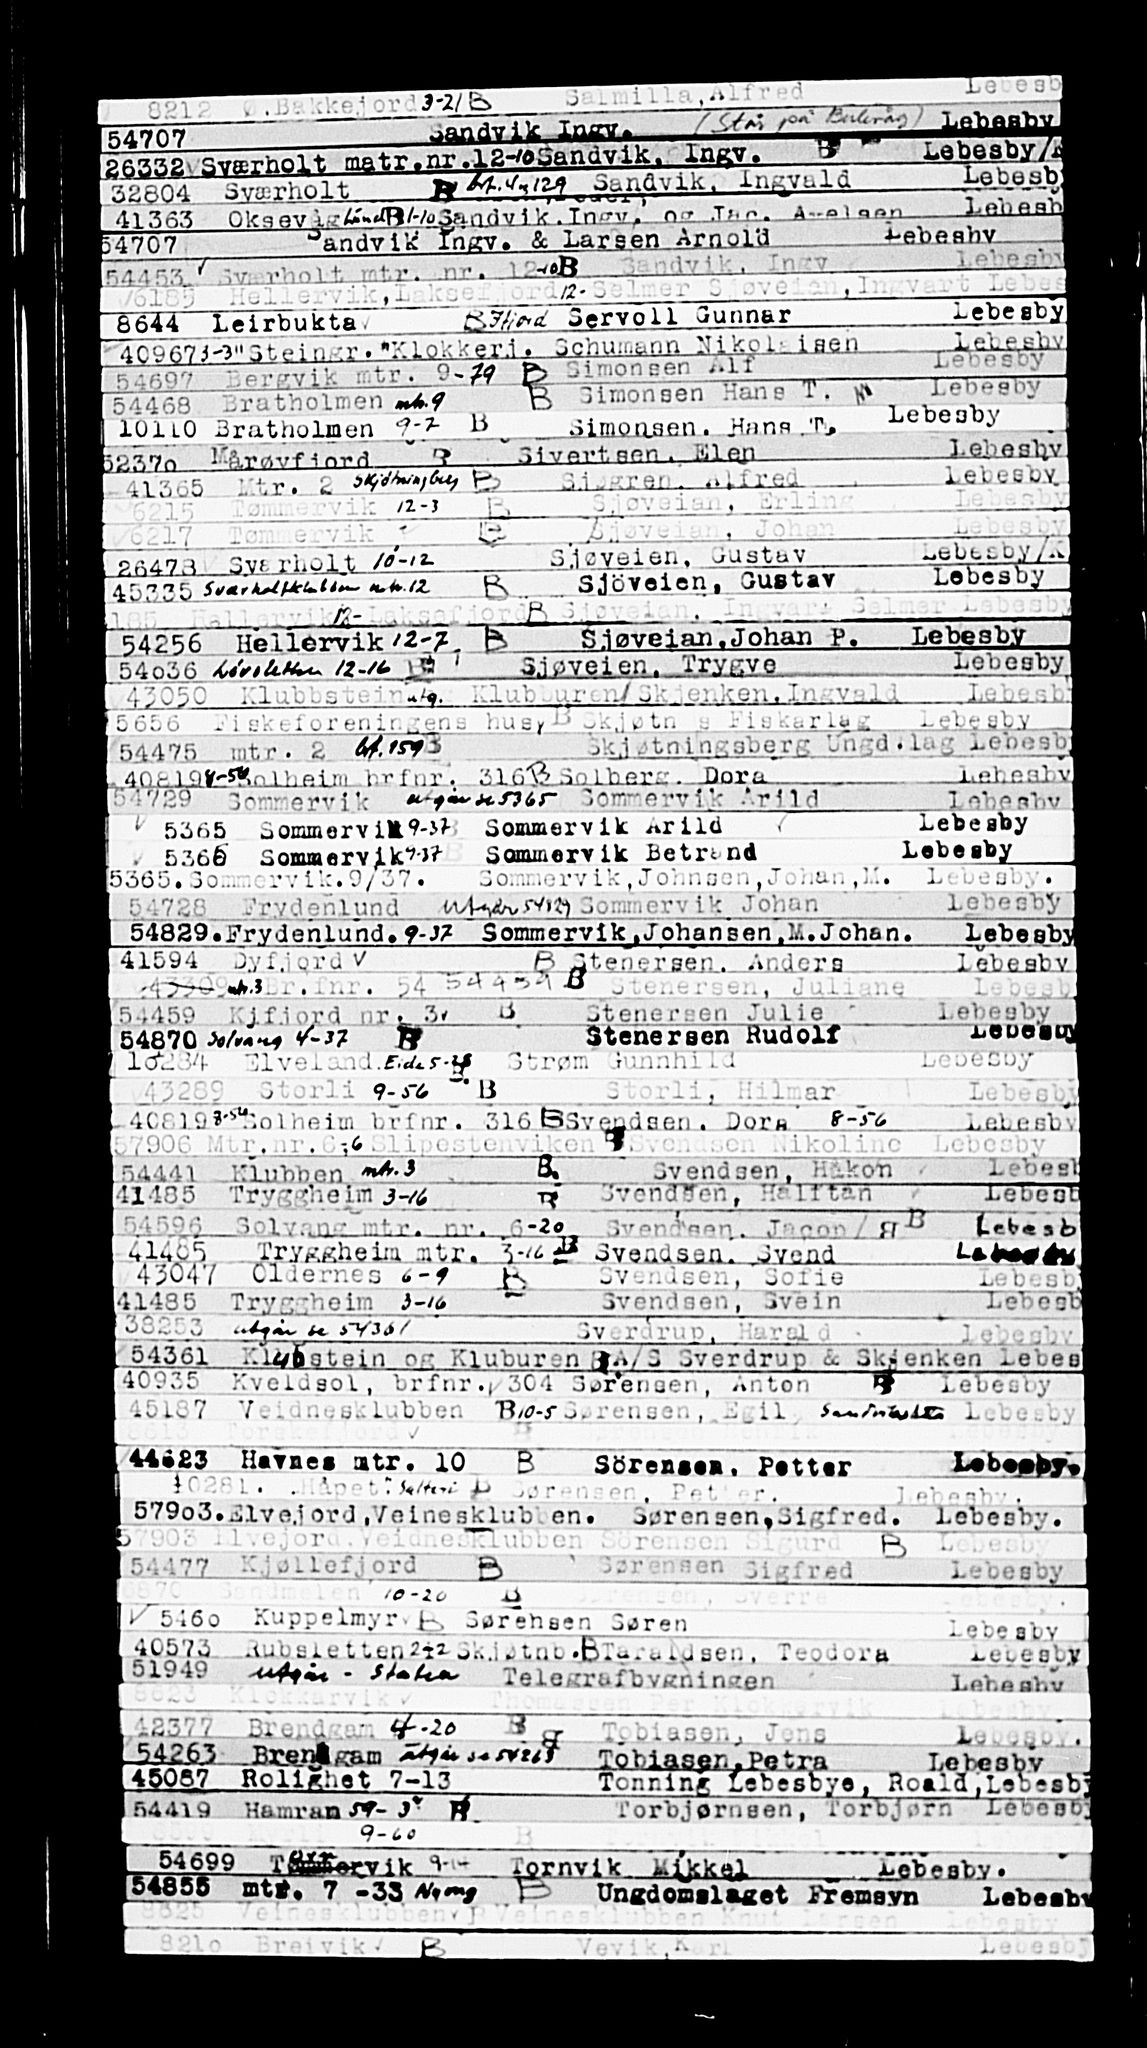 8212 Ø.Bakkejord 3-21 B Salmilla, Alfred Lebesb
54707 Sandvik Ingv. (Står på Lebesby
26332 Sværholt matr.nr.12-10 Sandvik, Ingv. B Lebesby/K
32804 Sværholt B brf. 4 og 129 Sandvik, Ingvald Lebesby
41363 Oksevåg B 1-10 Sandvik, Ingv. og Jac. Lebesb
54707 Sandvik Ingv. & Larsen Arnold Lebesby
54453 Sværholt mtr. nr. 12-10 B Sandvik, Ingv Lebesby
6185 Hellervik, Laksefjord 12- Selmer Sjøveien, Ingvart Lebes
8644 Leirbukta B Ifjord Servoll Gunnar Lebesby
40967 3-3 "Steingr." Klokkerj. Schumann Nikolaisen Lebesby
54697 Bergvik mtr. 9-79 B Simonsen Alf Lebesby
54468 Bratholmen mtr. 9 B Simonsen Hans T. Lebesby
10110 Bratholmen 9-2 B Simonsen, Hans T. Lebesby
52370 Mårøyfjord B Sivertsen, Elen Lebesby
41365 Mtr. 2 Skjøtningberg B Sjøgren, Alfred Lebesby
6215 Tømmervik 12-3 B Sjøveian, Erling Lebesby
6217 Tømmervik B Sjøveian, Johan Lebesby
26473 Sværholt 10-12 Sjøveien, Gustav Lebesby/K
45335 Sværholtklubben mtr. 12 B Sjöveien, Gustav Lebesby
185 Hallervik 12- Laksefjord B Sjøveian, Ingvar Selmer Lebesby
54256 Hellervik 12-7 B Sjøveian, Johan P. Lebesby
54036 12-16 B Sjøveien, Trygve Lebesby
43050 Klubbstein utg. Klubburen/Skjenken, Ingvald Lebesb
5656 Fiskeforeningens hus, B Skjøtn s Fiskarlag Lebesby
54475 mtr. 2 brf. 159 B Skjøtningsberg Ungd.lag Lebesby
40819 8-56 Solheim brfnr. 316 B Solberg, Dora Lebesby
54729 Sommervik utgår se 5365 Sommervik Arild Lebesby
5365 Sommervik 9-37 B Sommervik Arild Lebesby
5366 Sommervik 9-37 B Sommervik Betrand Lebesby
5365. Sommervik. 9/37. Sommervik, Johnsen, Johan, M. Lebesby.
54728 Frydenlund Utgår 54829 Sommervik Johan Lebesby
54829. Frydenlund. 9-37 Sommervik, Johansen, M. Johan. Lebesby
41594 Dyfjord B Stenersen, Anders Lebesby
43309 mtr. 3 Br.fnr. 54 54459 B Stenersen, Juliane Lebesb
54459 Kjfjord nr. 3. B Stenersen Julie Lebesby
54870 Solvang 4-37 B Stenersen Rudolf Lebesby
10284 Elveland. Eide 5-28 B. Strøm Gunnhild Lebesby
43289 Storli 9-56 B Storli, Hilmar Lebesby
40819 8-56 Solheim brfnr. 316 B Svendsen, Dora 8-56 Lebesby
57906 Mtr.nr. 6-6 Slipestenviken B Svendsen Nikoline Lebesby
54441 Klubben mtr. 3 B. Svendsen, Håkon Lebesb
41485 Tryggheim 3-16 B Svendsen, Halftan Lebesb
54596 Solvang mtr. nr. 6-20 Svendsen, Jacob B Lebesb
41485 Tryggheim mtr. 3-16 B Svendsen, Svend Lebesby
43047 Oldernes 6-9 B Svendsen, Sofie Lebesb
41485 Tryggheim 3-16 Svendsen, Svein Lebesb
38253 utgår se 54361 Sverdrup, Harald Lebesby
54361 Klubstein og Kluburen B A/S Sverdrup & Skjenken Lebes
40935 Kveldsol, brfnr. 304 Sørensen, Anton B Lebesby
45187 Veidnesklubben B 10-5 Sørensen, Egil Lebesby
8613 Torskefjord
44623 Havnes mtr. 10 B Sörensen, Petter Lebesby.
10281. "Håpet" B Sørensen, Petter. Lebesby.
57903. Elvejord, Veinesklubben. Sørensen, Sigfred. Lebesby.
57903 Elvejord, Veidnesklubben Sörensen Sigurd B Lebesby
54477 Kjøllefjord B Sørensen Sigfred Lebesby
6870 Sandmelen 10-20 B Sørensen, Sverre Lebesby.
5460 Kuppelmyr B Sørehsen Søren Lebesby
40573 Rubsletten 2-2 Skjøtnb. B Taraldsen, Teodora Lebesby
51949 utgår - Staten Telegrafbygningen Lebesby
8623 Klokkarvik Thomassen Per Klokkervik Lebesby.
42377 Brendgam 4-20 B Tobiasen, Jens Lebesby.
54263 Brendgam utgår se 54263 Tobiasen, Petra Lebesby
45087 Rolighet 7-13 Tonning Lebesbye, Roald, Lebesby
54419 Hamran 59-3 B Torbjørnsen, Torbjørn Lebesby
9-60 B
54699 Torrvik 9-14 Tornvik Mikkel Lebesby.
54855 mtr. 7-33 B Ungdomslaget Fremsyn Lebesby
8625 Veinesklubben B Veinesklubben Knut Larsen Lebesby
8210 Breivik B Vevik, Karl Lebesby